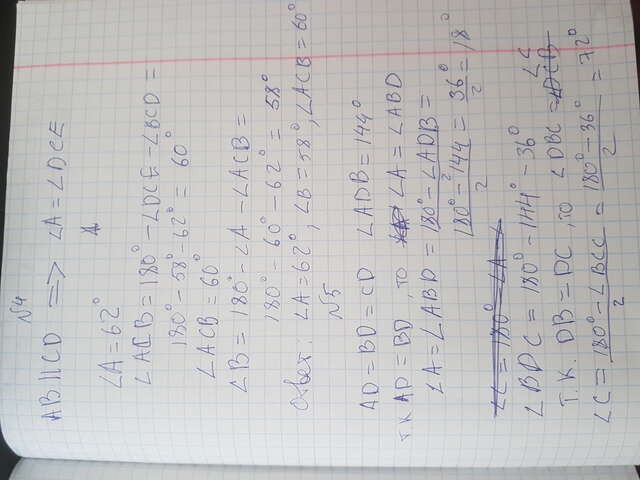 №4
AB || CD => ∠A = ∠DCE
∠A = 62°
∠ACB = 180° - ∠DCE - ∠BCD =
180° - 58° - 62° = 60°
∠ACB = 60°
∠B = 180° - ∠A - ∠ACB =
180° - 60° - 62° = 58°
Ответ: ∠A = 62°, ∠B = 58°, ∠ACB = 60°
№5
AD = BD = CD ∠ADB = 144°
т.к AD = BD, то ∠A = ∠ABD
∠A = ∠ABD = (180° - ∠ADB)/2 =
(180° - 144)/2 = 36°/2 = 18°
∠C = 180° - ∠A - ∠
∠BDC = 180° - 144° - 36°
Т.К. DB = DC, то ∠DBC = ∠DCB ∠C
∠C = (180° - ∠BCC)/2 = (180° - 36°)/2 = 72°